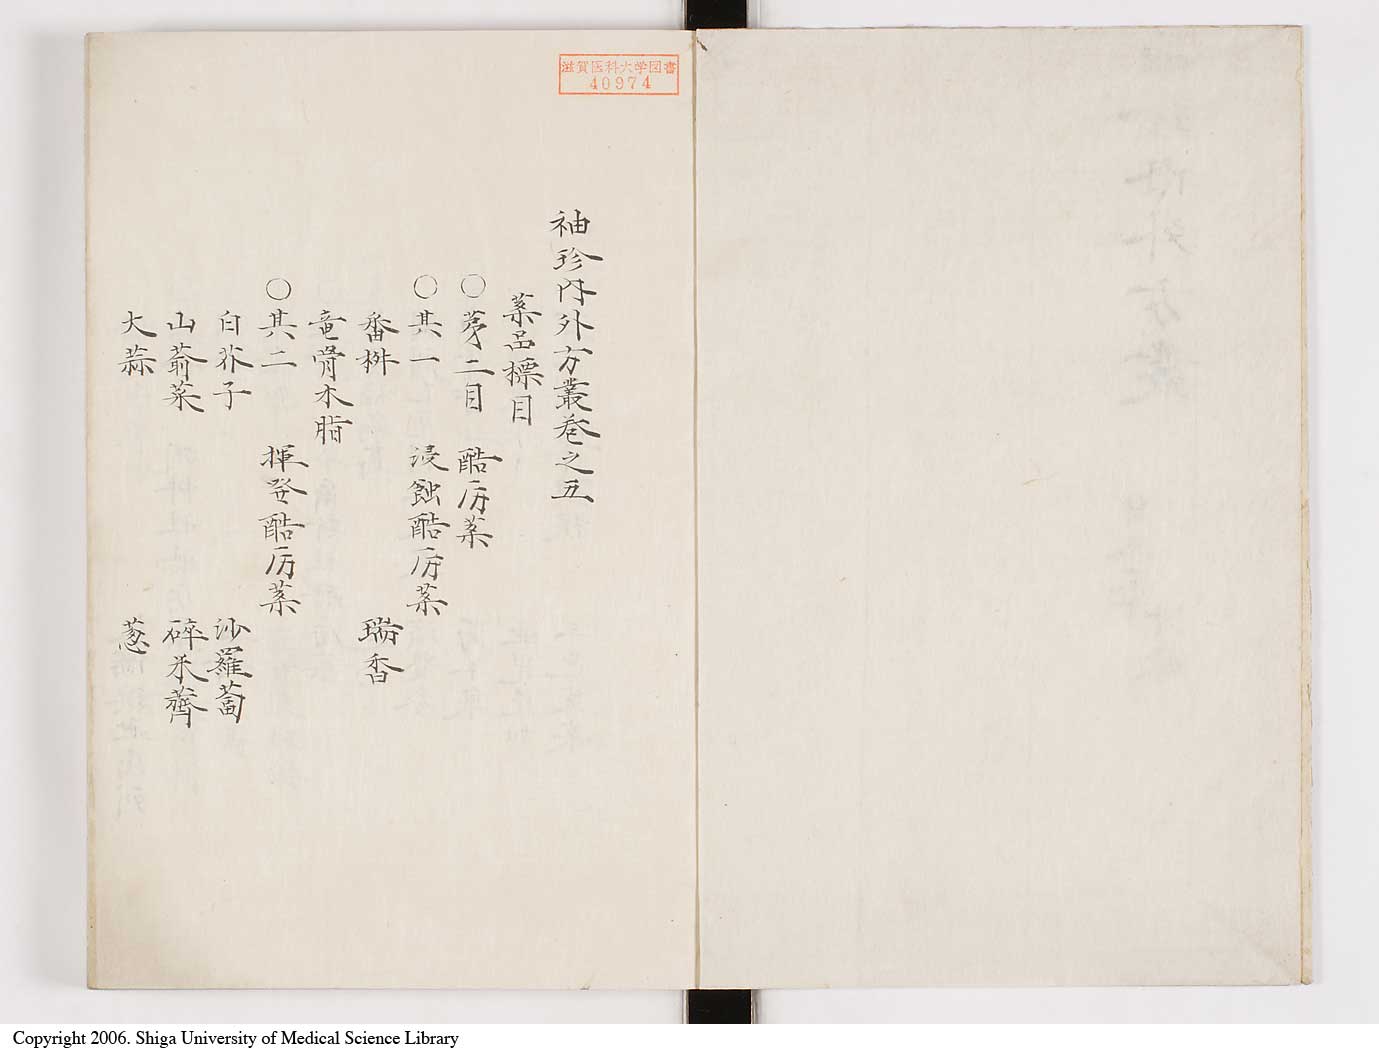 滋賀医科大学図書
40974
袖珍内外方叢巻之五
薬品標目
○第二目 酷厉薬
○其一 浸蝕酷厉薬
番椒 瑞香
竜脳木脂
○其二 揮発酷厉薬
白芥子 沙羅蔔
山葵菜 碎米薺
大蒜 葱
Copyright 2006. Shiga University of Medical Science Library